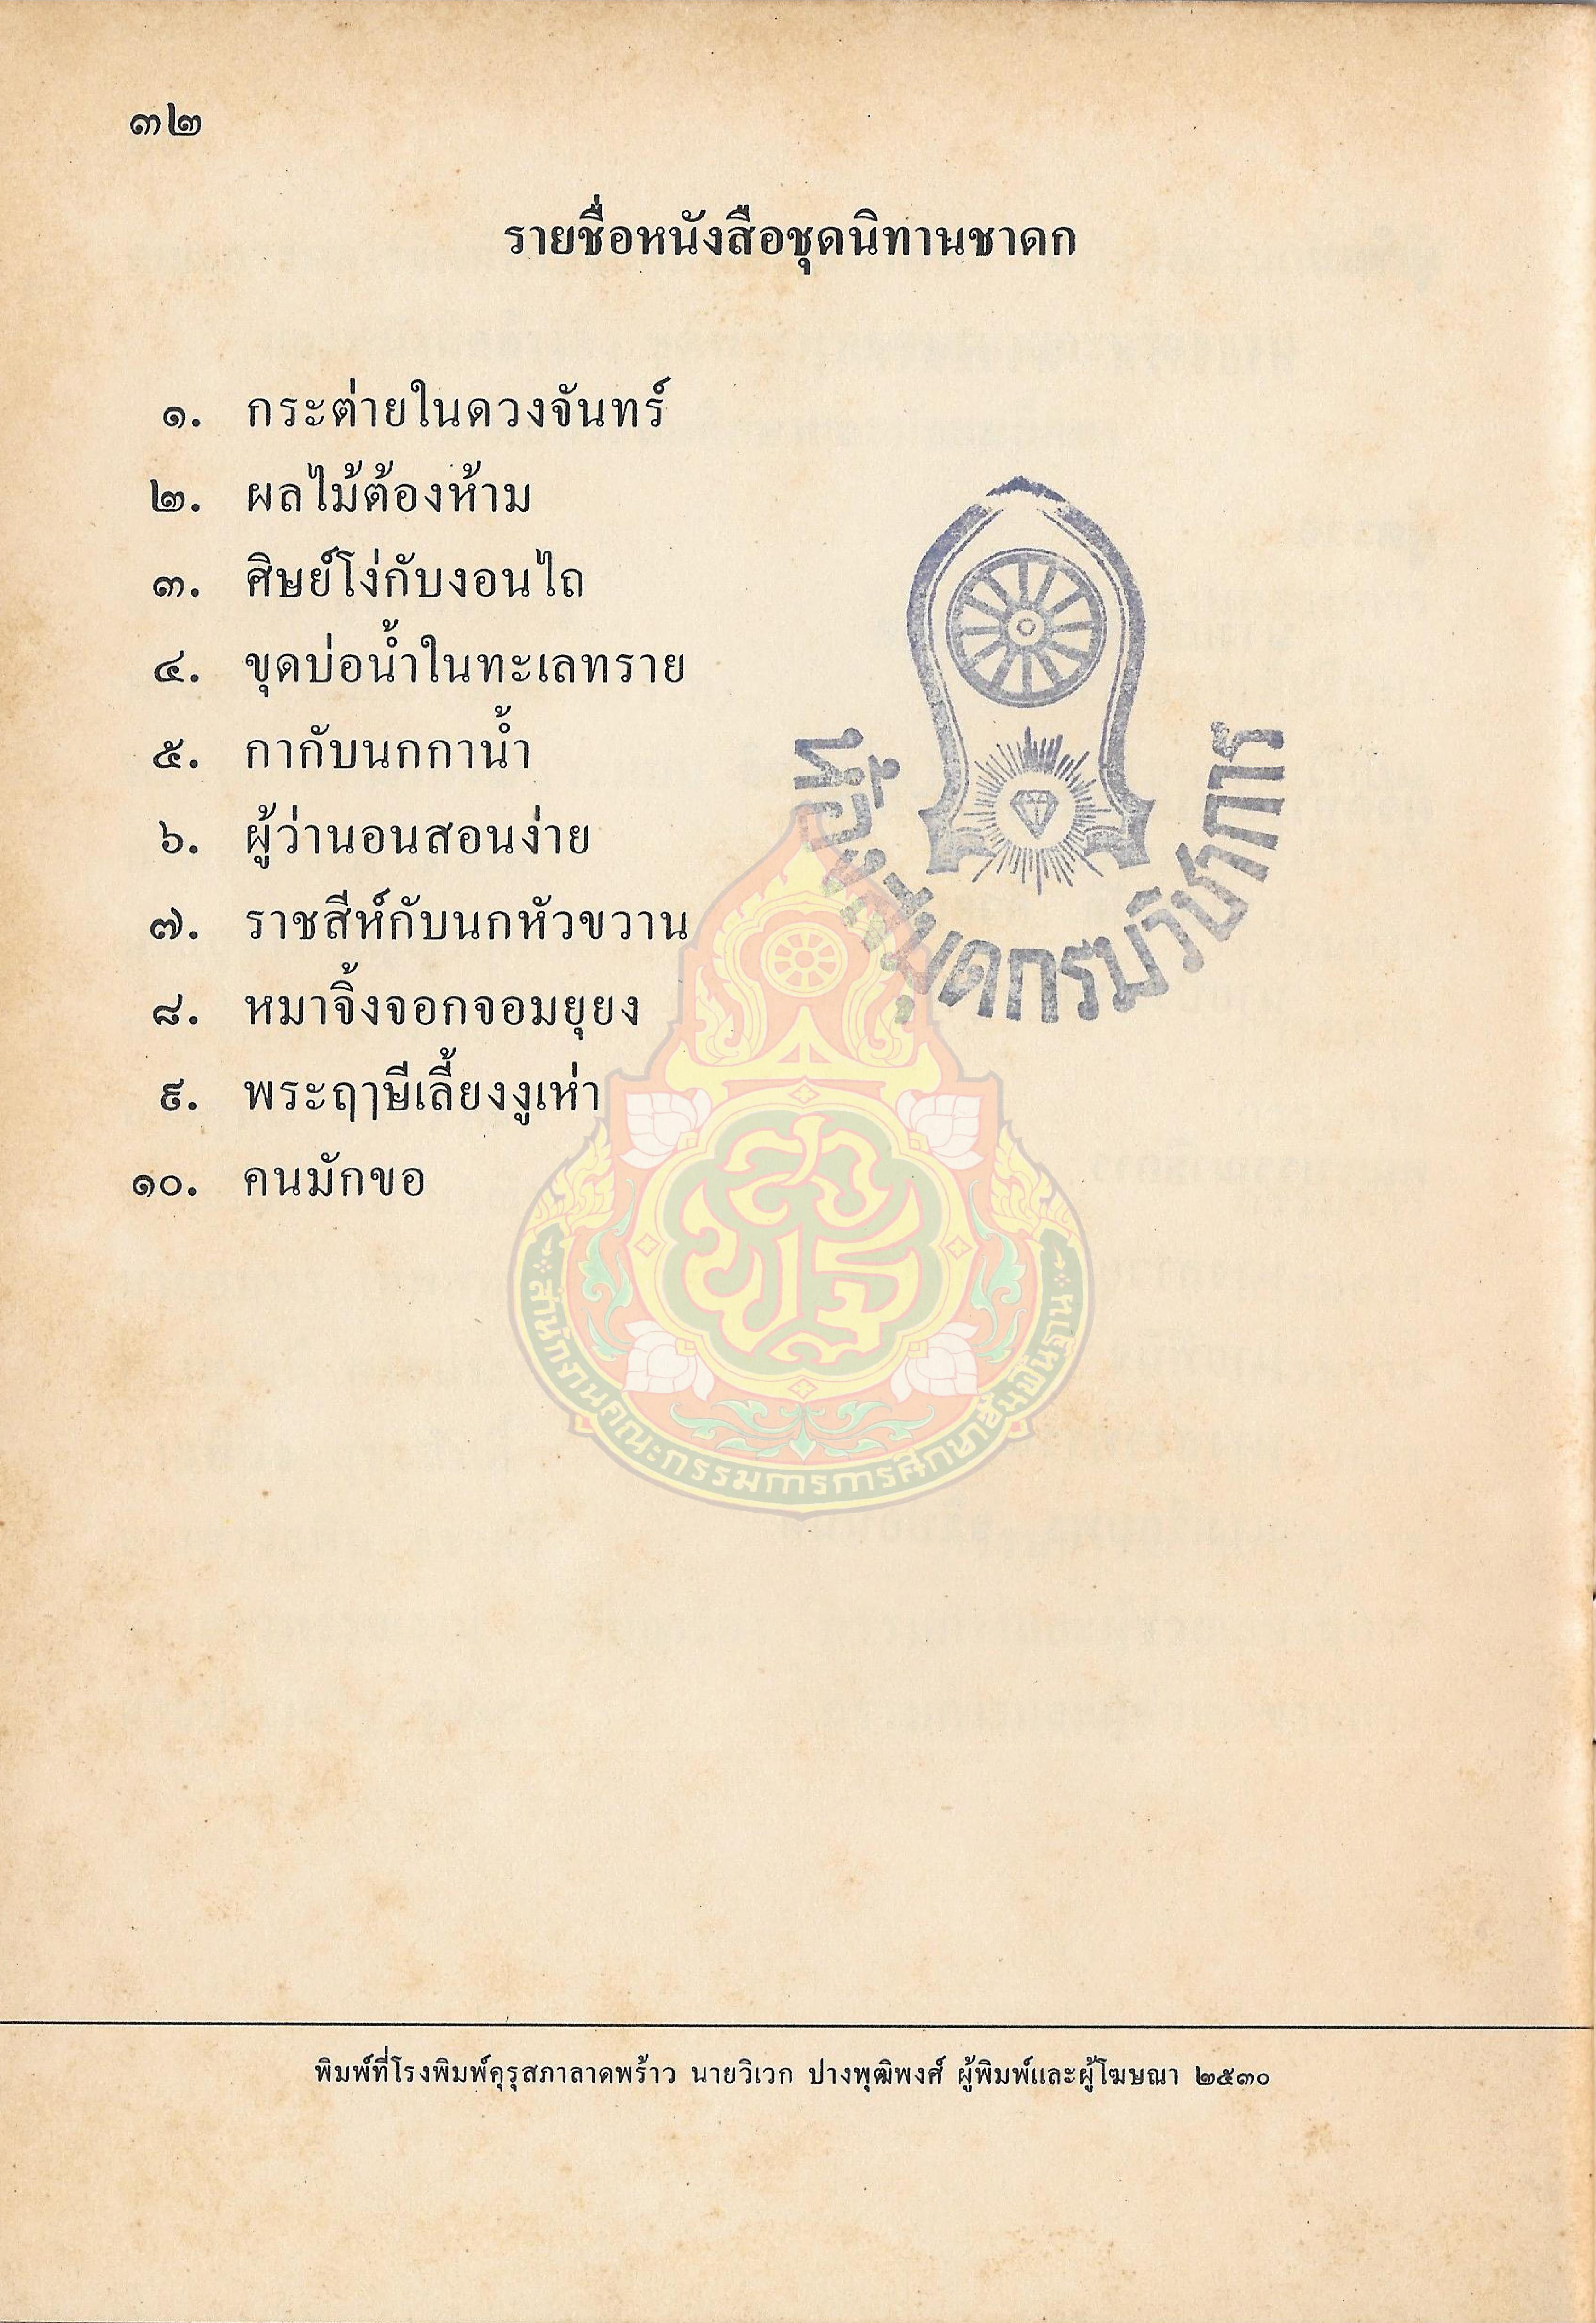 ๓๒
รายชื่อหนังสือชุดนิทานชาดก
๑. กระต่ายในดวงจันทร์
๒. ผลไม้ต้องห้าม
๓. ศิษย์โง่กับงอนไถ
๔. ขุดบ่อน้ำในทะเลทราย
๕. กากับนกกาน้ำ
๖. ผู้ว่านอนสอนง่าย
๗. ราชสีห์กับนกหัวขวาน
๘. หมาจิ้งจอกจอมยุยง
๙. พระฤๅษีเลี้ยงงูเห่า
๑๐. คนมักขอ
ห้องสมุดกรมวิชาการ
สพฐ
สำนักงานคณะกรรมการการศึกษาขั้นพื้นฐาน
พิมพ์ที่โรงพิมพ์คุรุสภาลาดพร้าว นายวิเวก ปางพุฒิพงศ์ ผู้พิมพ์และผู้โฆษณา ๒๕๓๐